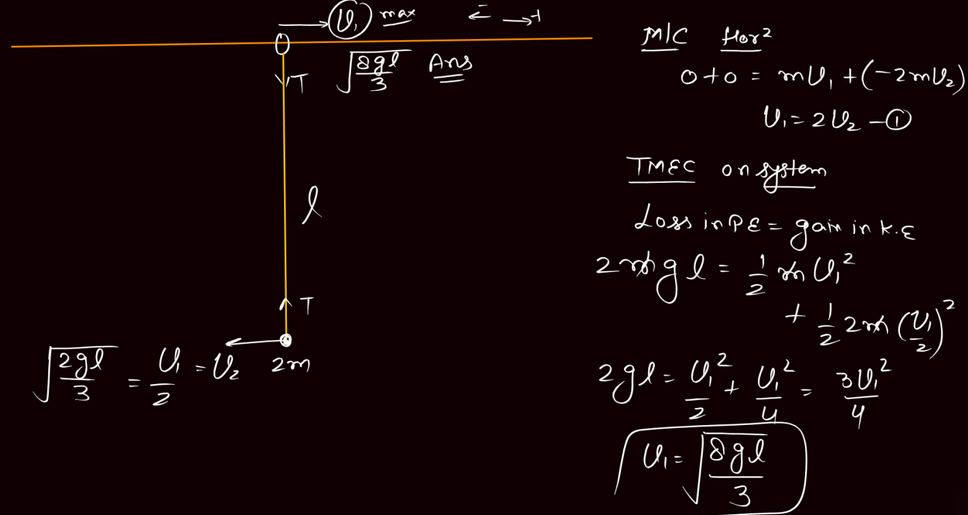 V₁ max ← → +
√(8gl/3) Ans
T
l
T
√(2gl/3) = V₁/2 = V₂ 2m
M/C Hor²
0 + 0 = mV₁ + (-2mV₂)
V₁ = 2V₂ — ①
TMEC on system
Loss in PE = gain in K.E
2mgl = 1/2 mV₁²
+ 1/2 2m (V₁/2)²
2gl = V₁²/2 + V₁²/4 = 3V₁²/4
V₁ = √(8gl/3)